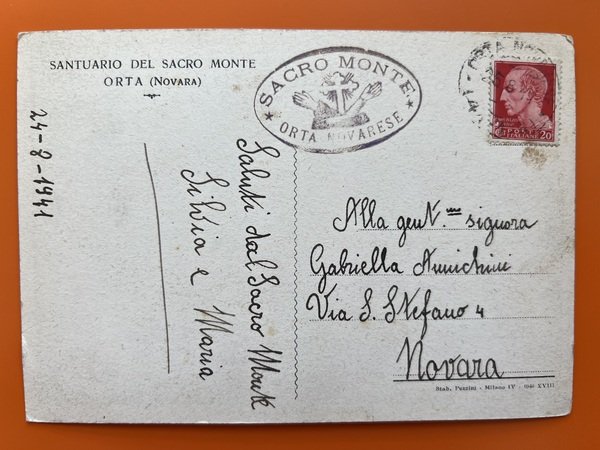 SANTUARIO DEL SACRO MONTE
ORTA (NOVARA)
SACRO MONTE
ORTA NOVARESE
ORTA NO
POSTE
ITALIANE
20
24-8-1941
Saluti dal Sacro Monte
Silvia e Maria
Alla gent.ma signora
Gabriella Amichini
Via S. Stefano 4
Novara
Stab. Pezzini - Milano IV - 1940 XVIII